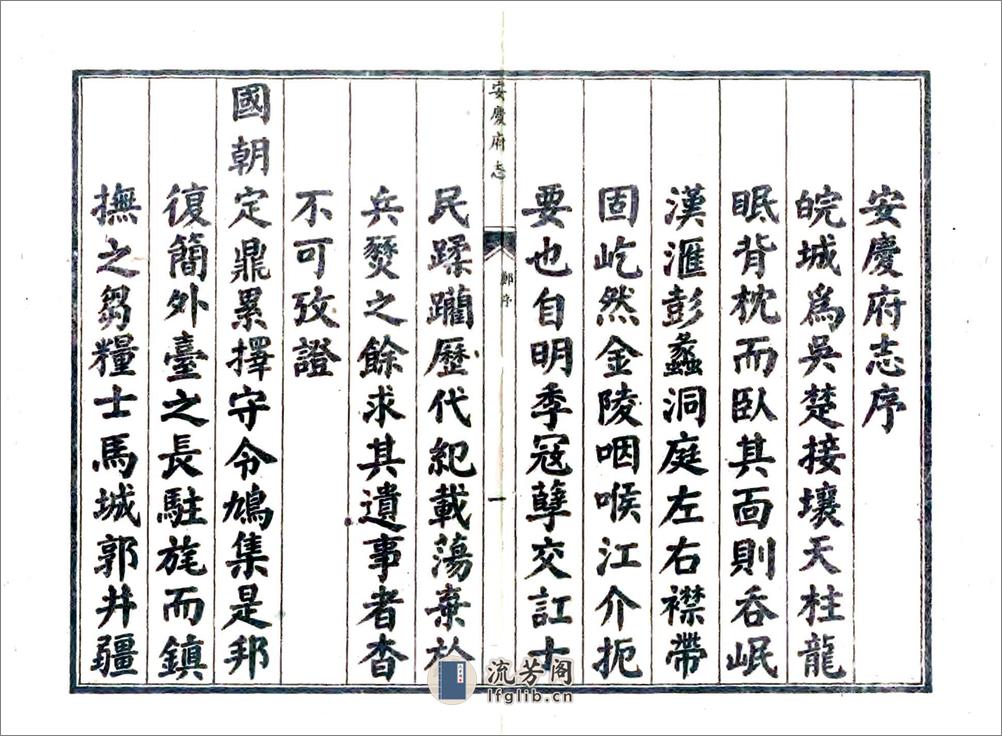 安慶府志序
皖城爲吳楚接壤天柱龍
眠背枕而臥其面則吞岷
漢滙彭蠡洞庭左右襟帶
固屹然金陵咽喉江介扼
要也自明季寇孽交訌士
安慶府志
鄭序
一
民蹂躪歷代紀載蕩棄於
兵燹之餘求其遺事者杳
不可攷證
國朝定鼎累擇守令鳩集是邦
復簡外臺之長駐旄而鎮
撫之芻糧士馬城郭井疆
流芳阁
lfglib.cn